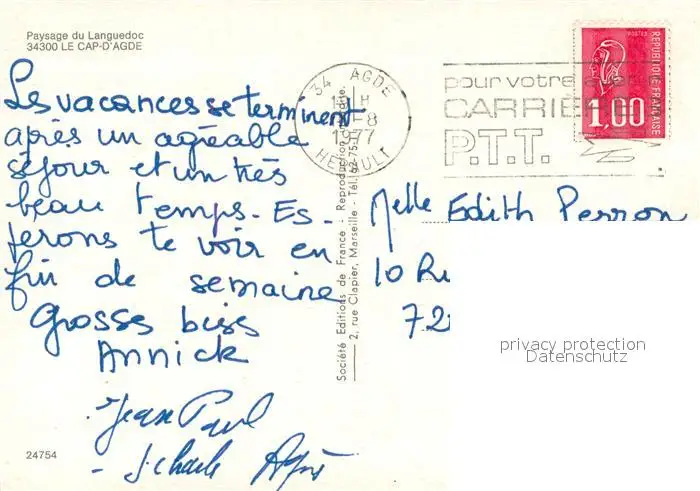 Paysage du Languedoc
34300 LE CAP-D'AGDE
Les vacances se terminent
après un agréable
séjour et un très
beau temps. Es-
perons te voir en
fin de semaine
Grosses bises
Annick
Jean Paul
24754
34 AGDE
1977
HERAULT
pour votre
CARRIÈ
P.T.T.
POSTES
REPUBLIQUE FRANÇAISE
1,00
Société Editions de France - Reproduction interdite.
2, rue Clapier, Marseille - Tél. 62-75-
Melle Edith Perron
10 Ru
72
privacy protection
Datenschutz